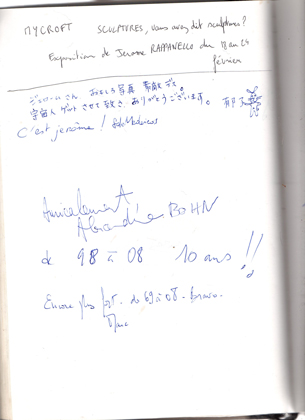 MYCROFT SCULPTURES, vous avez dit sculptures?
Exposition de Jerome RAPPANELLO du 18 au 24
février
ジェロームさん おもしろ写真 素敵です。
宇宙人 ゲット させて頂き、ありがとうございます。
C'est jerôme!
Amicalement
Alexandre BOHN
de 98 à 08 10 ans!!
Encore plus fort. de 69 à 08. bravo.